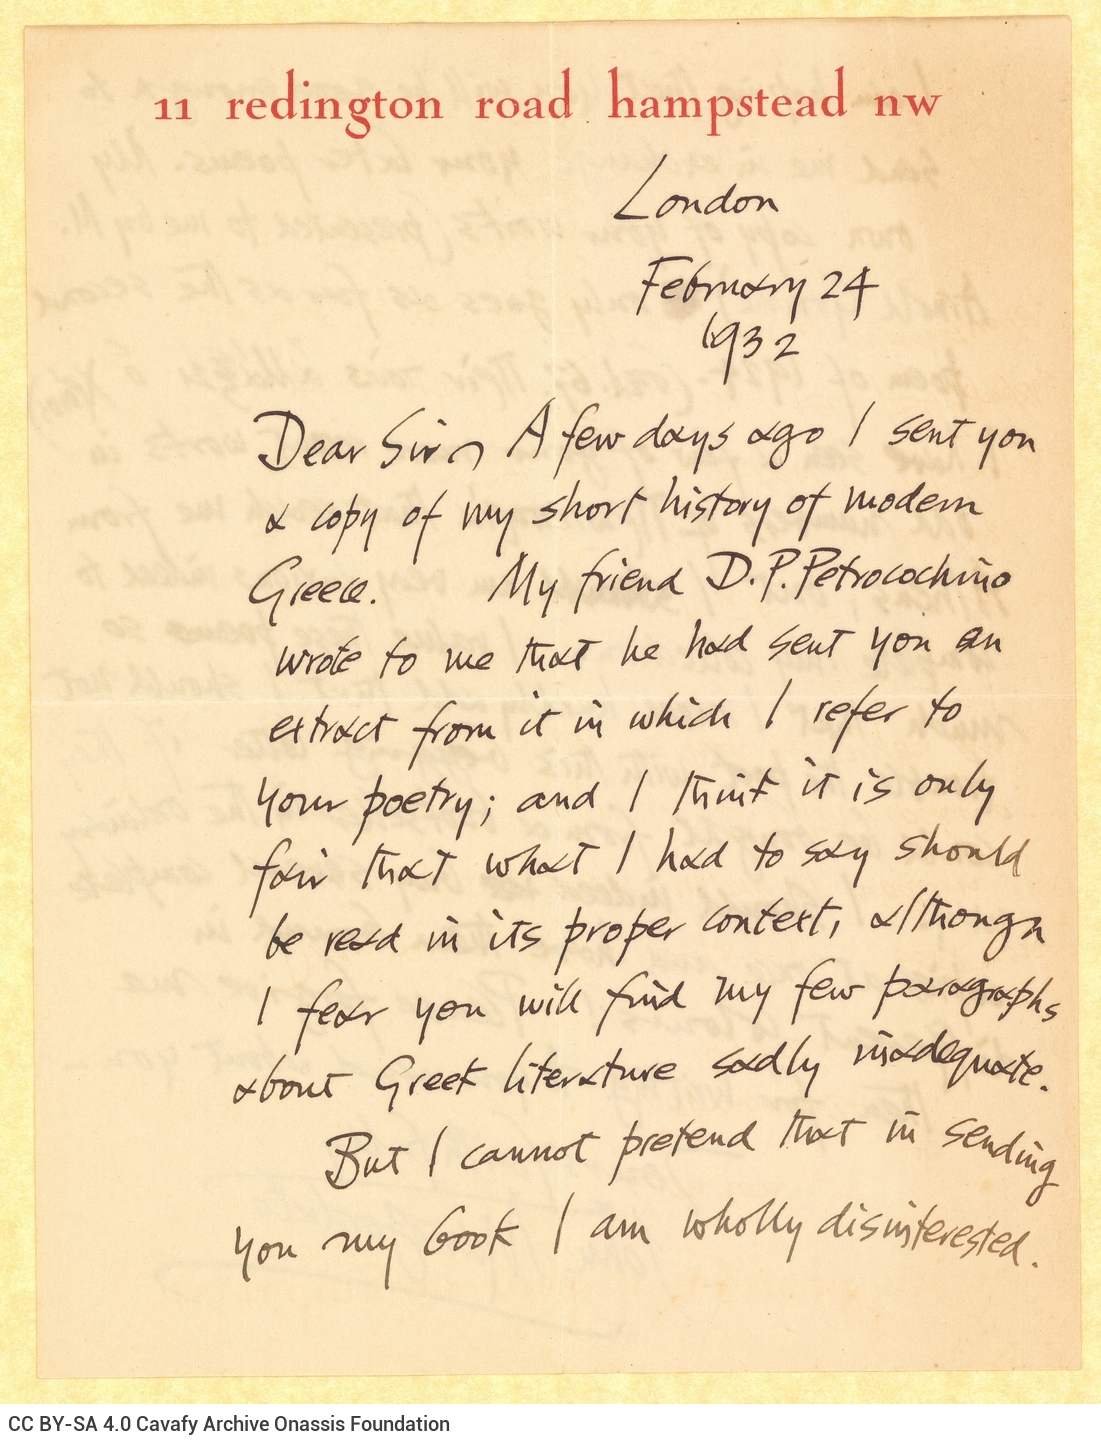 11 redington road hampstead nw
London
February 24
1932
Dear Sir, A few days ago I sent you
a copy of my short history of modern
Greece. My friend D.P. Petrocochino
wrote to me that he had sent you an
extract from it in which I refer to
your poetry; and I think it is only
fair that what I had to say should
be read in its proper context, although
I fear you will find my few paragraphs
about Greek literature sadly inadequate.
But I cannot pretend that in sending
you my book I am wholly disinterested.
CC BY-SA 4.0 Cavafy Archive Onassis Foundation